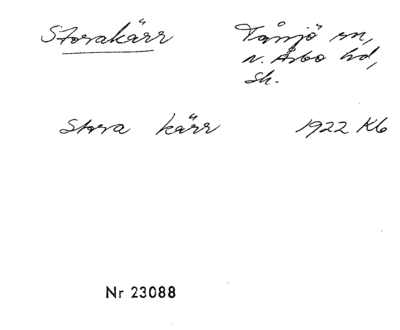 Storakärr Tåssjö sn,
n. Åsbo hd,
Sk.
Stora kärr 1922 Kb
Nr 23088